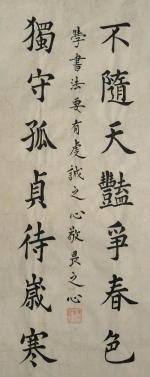 不隨天豔爭春色
獨守孤貞待歲寒
學書法要有虔誠之心敬畏之心